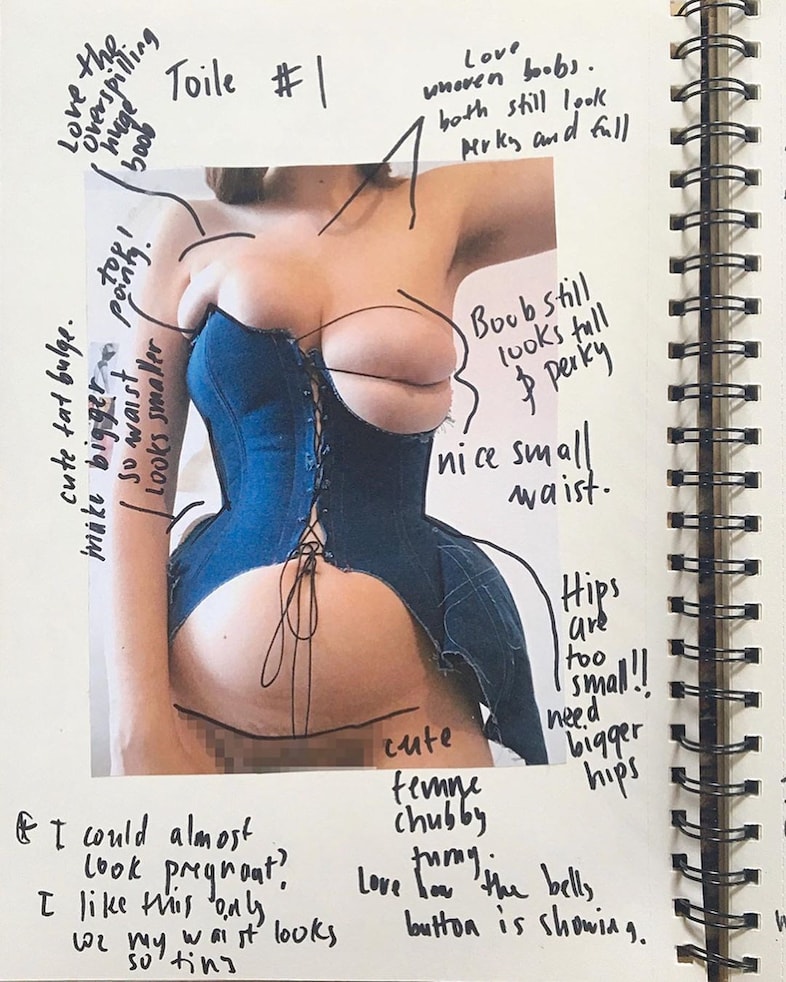 Toile #1
Love the
overspilling
huge
boob
Love
uneven boobs.
both still look
perky and full
too
pointy.
Boob still
looks full
& perky
cute fat bulge.
make bigger
so waist
looks smaller
nice small
waist.
Hips
are
too
small!!
need
bigger
hips
cute
femme
chubby
tummy.
Love how the belly
button is showing.
* I could almost
look pregnant?
I like this only
coz my waist looks
so tiny